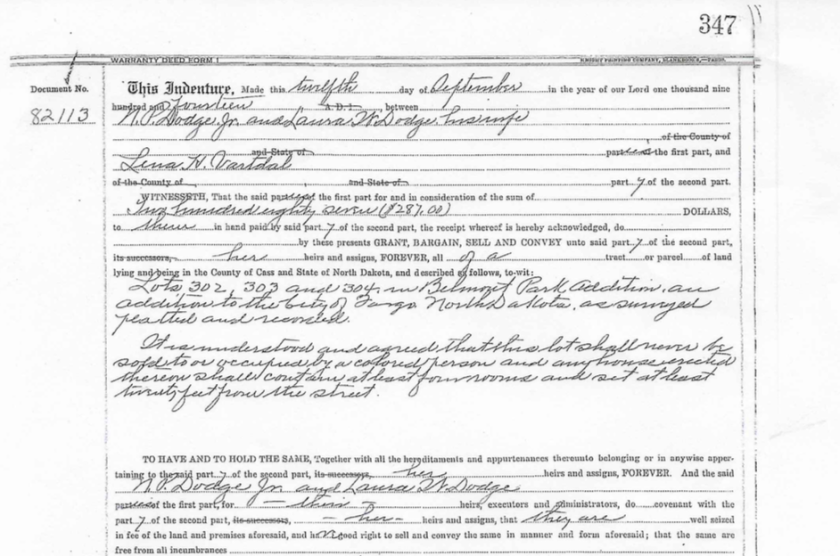 347
WARRANTY DEED FORM 1
Document No.
82113
This Indenture, Made this twelfth day of September in the year of our Lord one thousand nine
hundred and fourteen A. D. 1 , between
N. P. Dodge Jr. and Laura W. Dodge, his wife
of the County of
and State of parties of the first part, and
Lena H. Vartdal
of the County of and State of part y of the second part.
WITNESSETH, That the said parties of the first part for and in consideration of the sum of
Two hundred eighty seven ($287.00) DOLLARS,
to them in hand paid by said part y of the second part, the receipt whereof is hereby acknowledged, do
by these presents GRANT, BARGAIN, SELL AND CONVEY unto said part y of the second part,
its successors, her heirs and assigns, FOREVER, all of a tract or parcel of land
lying and being in the County of Cass and State of North Dakota, and described as follows, to-wit:
Lots 302, 303 and 304, in Belmont Park Addition, an
addition to the City of Fargo North Dakota, as surveyed
platted and recorded.
It is understood and agreed that this lot shall never be
sold to or occupied by a colored person and any house erected
thereon shall contain at least four rooms and set at least
twenty feet from the street.
TO HAVE AND TO HOLD THE SAME, Together with all the hereditaments and appurtenances thereunto belonging or in anywise apper-
taining to the said part y of the second part, its successors, her heirs and assigns, FOREVER. And the said
N. P. Dodge Jr. and Laura W. Dodge
parties of the first part, for - their - heirs, executors and administrators, do covenant with the
part y of the second part, its successors, - her - heirs and assigns, that they are well seized
in fee of the land and premises aforesaid, and have good right to sell and convey the same in manner and form aforesaid; that the same are
free from all incumbrances